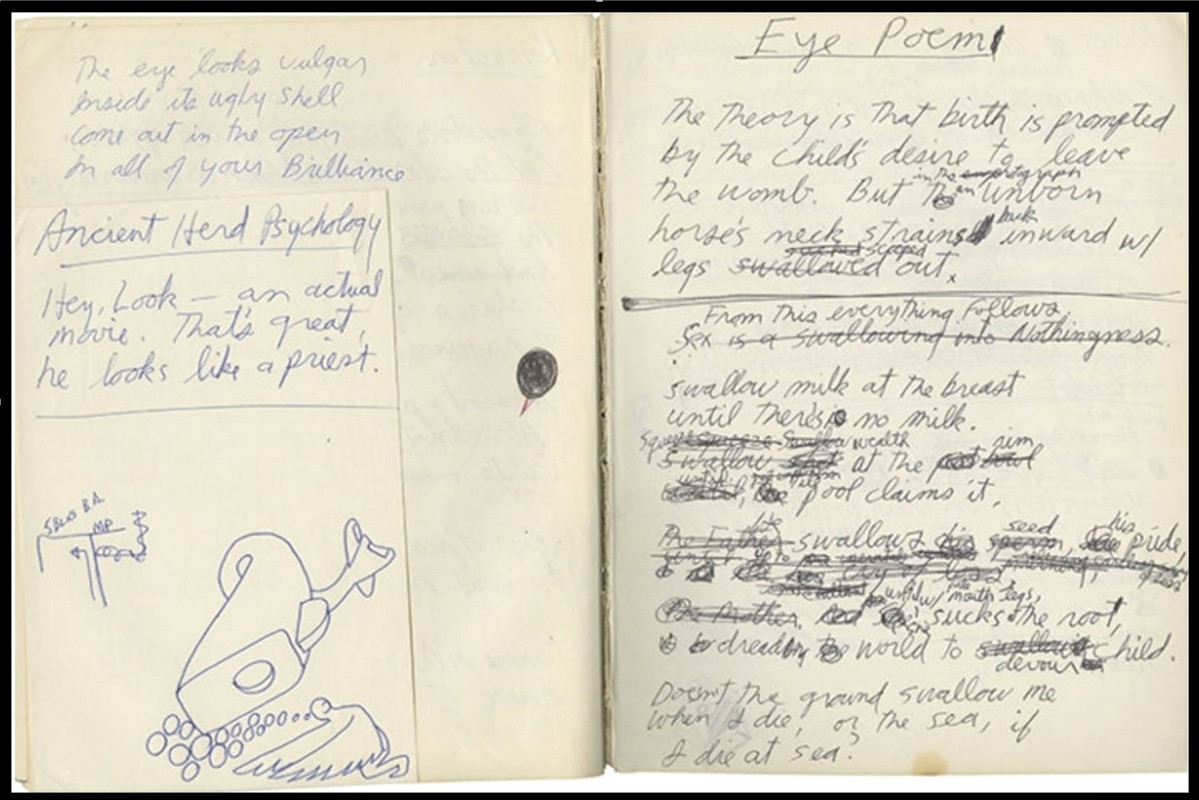 The eye looks vulgar
Inside its ugly shell
Come out in the open
In all of your Brilliance
Ancient Herd Psychology
Hey, Look — an actual
movie. That's great,
he looks like a priest.
Eye Poem
The Theory is That birth is prompted
by The child's desire to leave
in the
the womb. But an unborn
back
horse's neck strains inward w/
scooped
legs swallowed out.
From this everything follows.
Sex is a swallowing into Nothingness.
swallow milk at The breast
until There's no milk.
wealth rim
swallow at The
until
pool claims it.
seed his
The Father swallows his sperm, pride,
until
cry of
w/ mouth legs,
The Mother, sucks The root,
dread world to child.
devour
Doesn't The ground swallow me
when I die, or The sea, if
I die at sea?